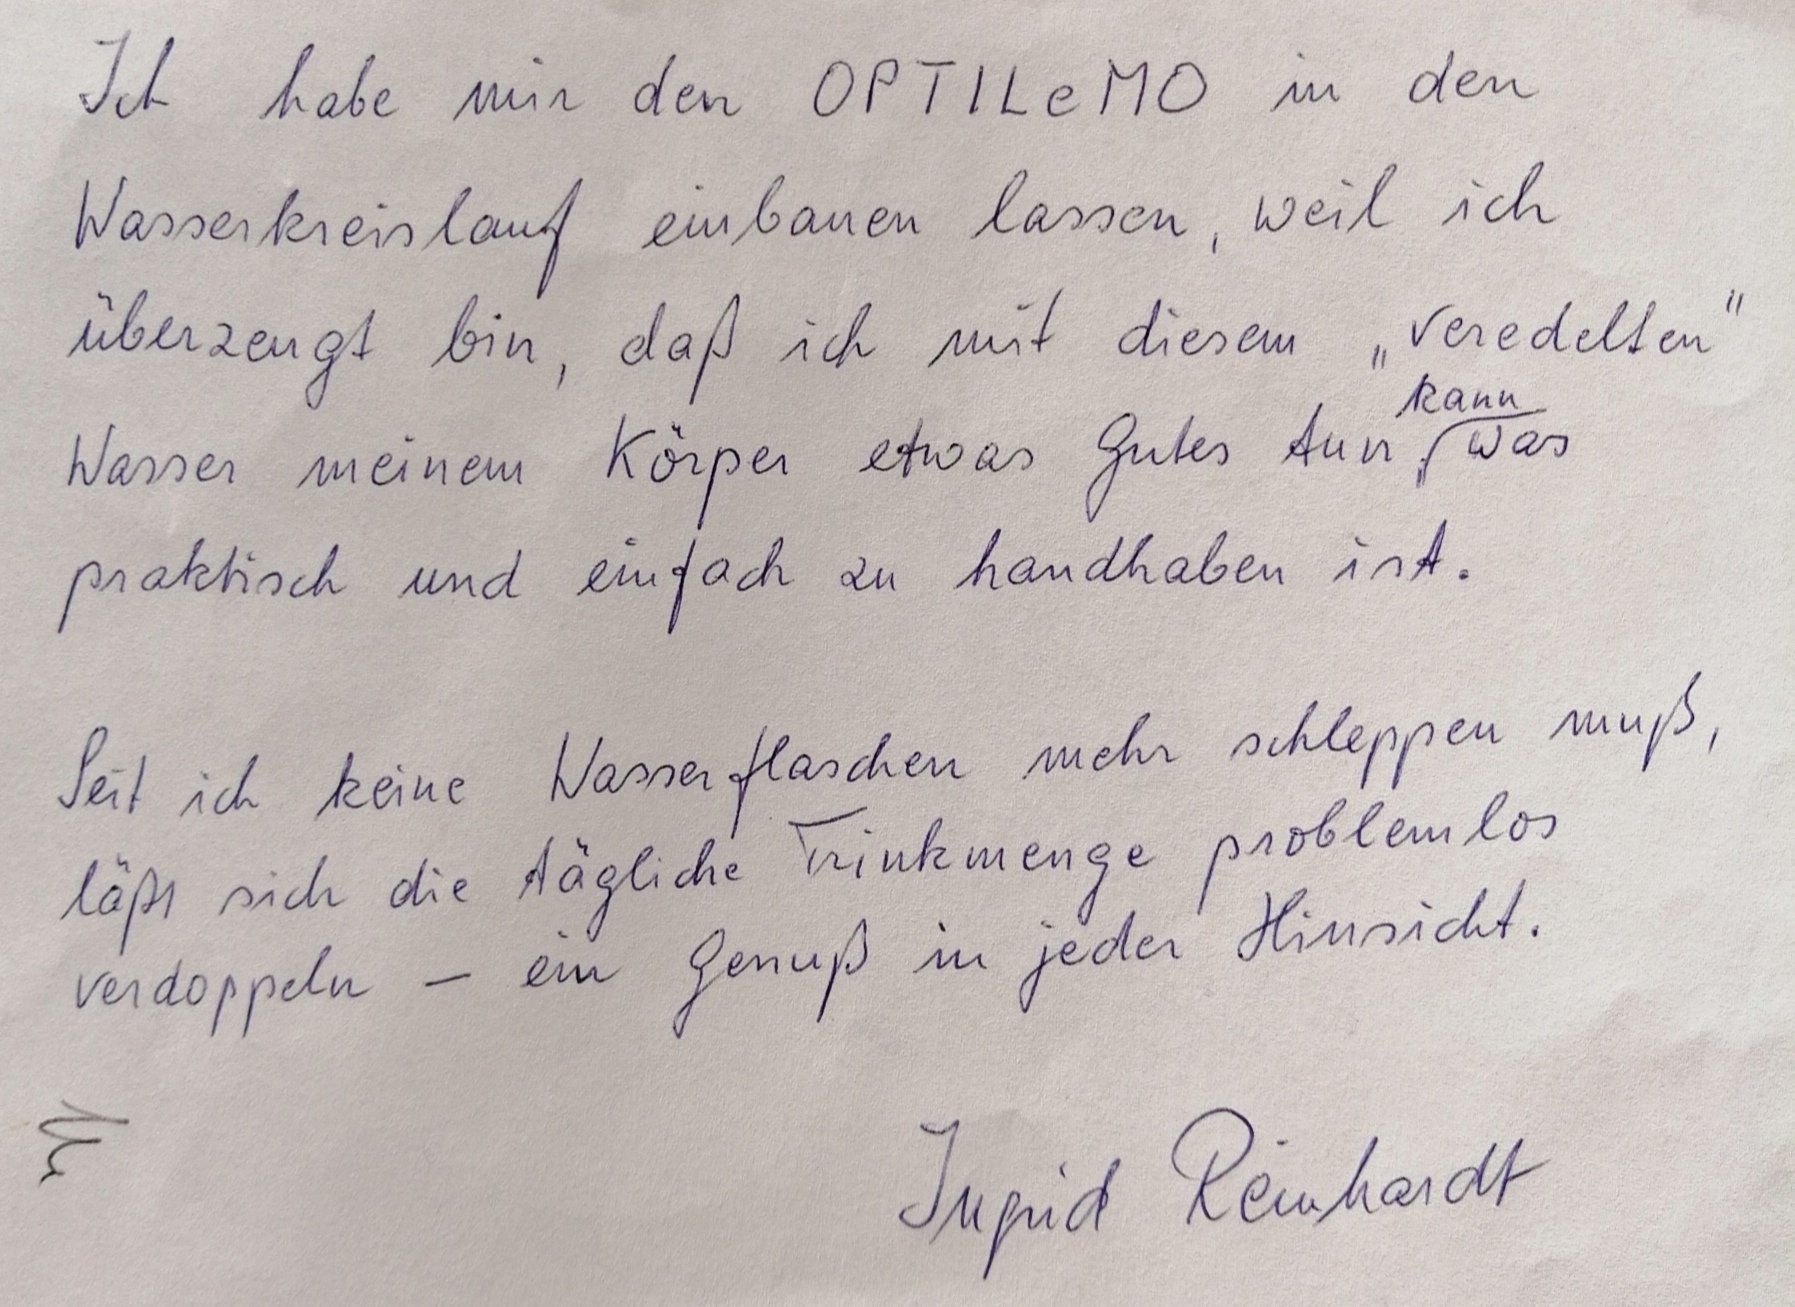 Ich habe mir den OPTILeMO in den
Wasserkreislauf einbauen lassen, weil ich
überzeugt bin, daß ich mit diesem „veredelten“
Wasser meinem Körper etwas Gutes tun kann, was
praktisch und einfach zu handhaben ist.
Seit ich keine Wasserflaschen mehr schleppen muß,
läßt sich die tägliche Trinkmenge problemlos
verdoppeln – ein Genuß in jeder Hinsicht.
Ingrid Reinhardt